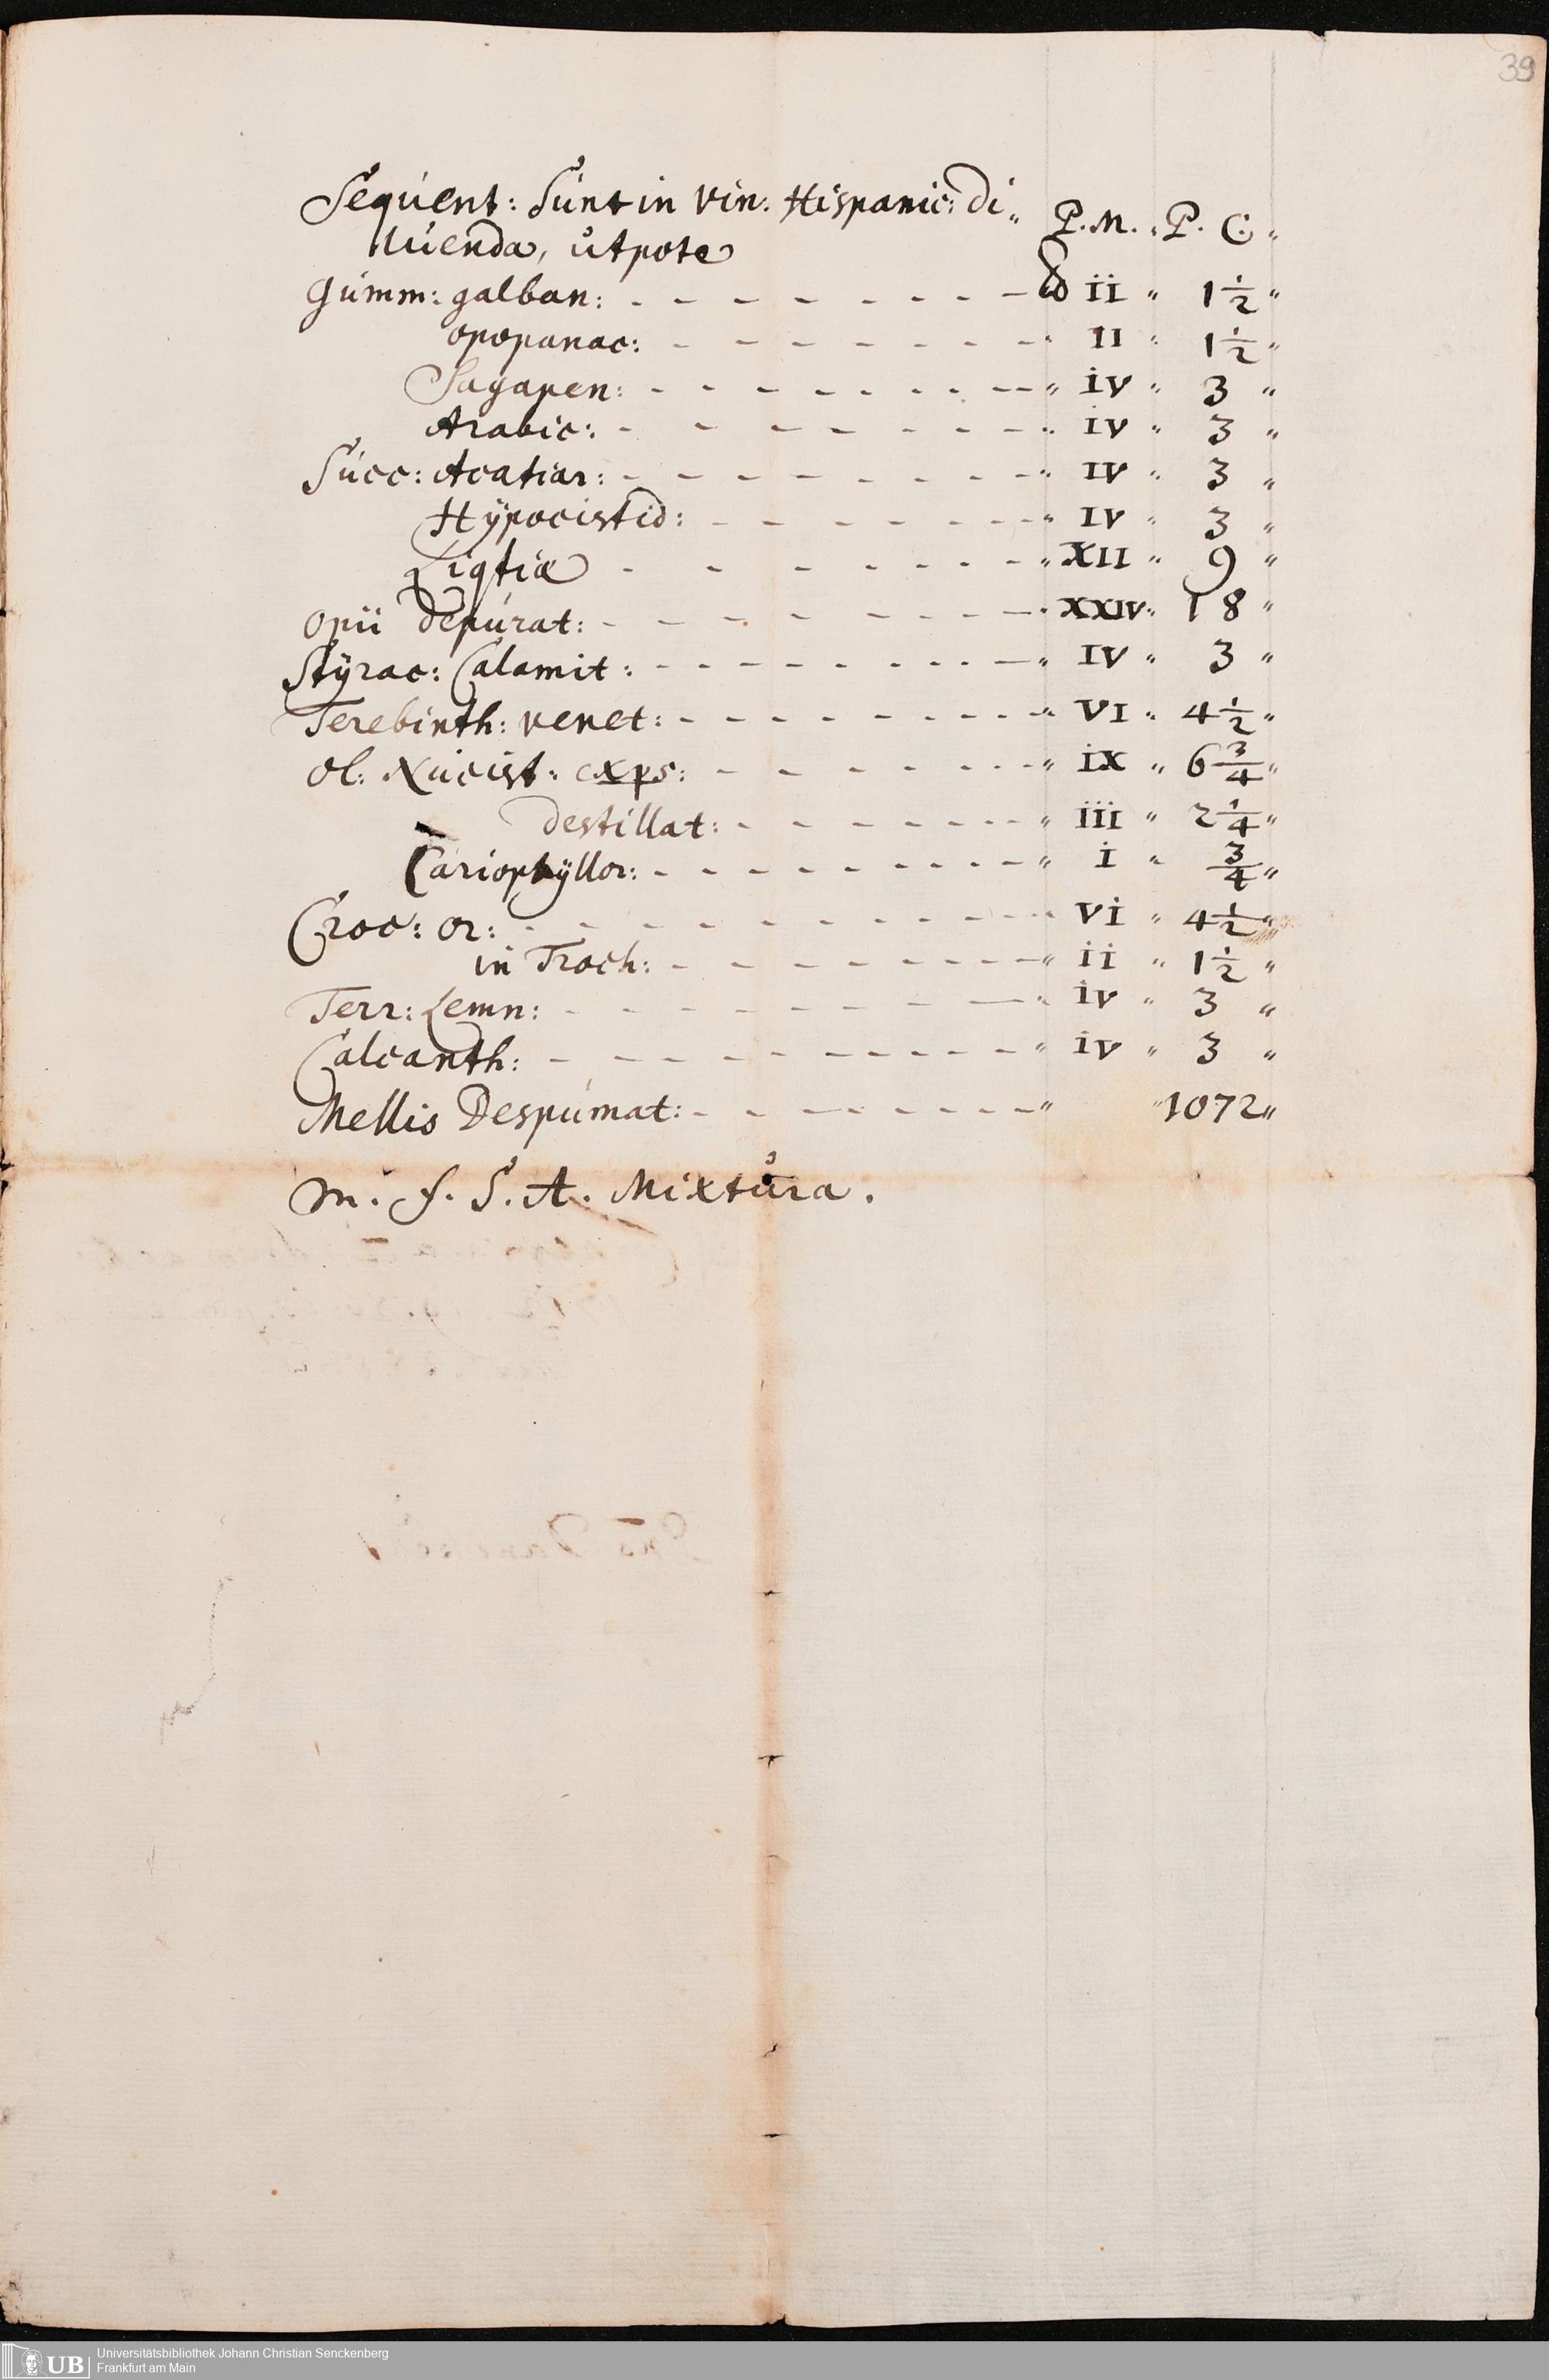 39
Sequent: Sunt in Vin: Hispanic: Di„ P. M. „ P. C. „
luenda, utpote
Gumm: galban: - - - - - - - - ℔ ii „ 1 1/2 „
opopanac: - - - - - - - „ II „ 1 1/2 „
Sagapen: - - - - - - - - „ iv „ 3 „
Arabic: - - - - - - - - „ iv „ 3 „
Succ: Acatiar: - - - - - - - - „ IV „ 3 „
Hÿpocistid: - - - - - - - „ IV „ 3 „
Liqtiæ - - - - - - - - „ XII „ 9 „
opii depurat: - - - - - - - - „ XXIV „ 18 „
Stÿrac: Calamit: - - - - - - - - „ IV „ 3 „
Terebinth: venet: - - - - - - - - „ VI „ 4 1/2 „
ol: Nucist: exps: - - - - - - - „ ix „ 6 3/4 „
destillat: - - - - - - - - „ iii „ 2 1/4 „
Cariophÿllor: - - - - - - - - - „ i „ 3/4 „
Croc: or: - - - - - - - - - - „ vi „ 4 1/2 „
in Troch: - - - - - - - - „ ii „ 1 1/2 „
Terr: Lemn: - - - - - - - - „ iv „ 3 „
Calcanth: - - - - - - - - - - „ iv „ 3 „
Mellis Despumat: - - - - - - - - „ „ 1072 „
m. f. S. A. Mixtura.
UB Universitätsbibliothek Johann Christian Senckenberg
Frankfurt am Main